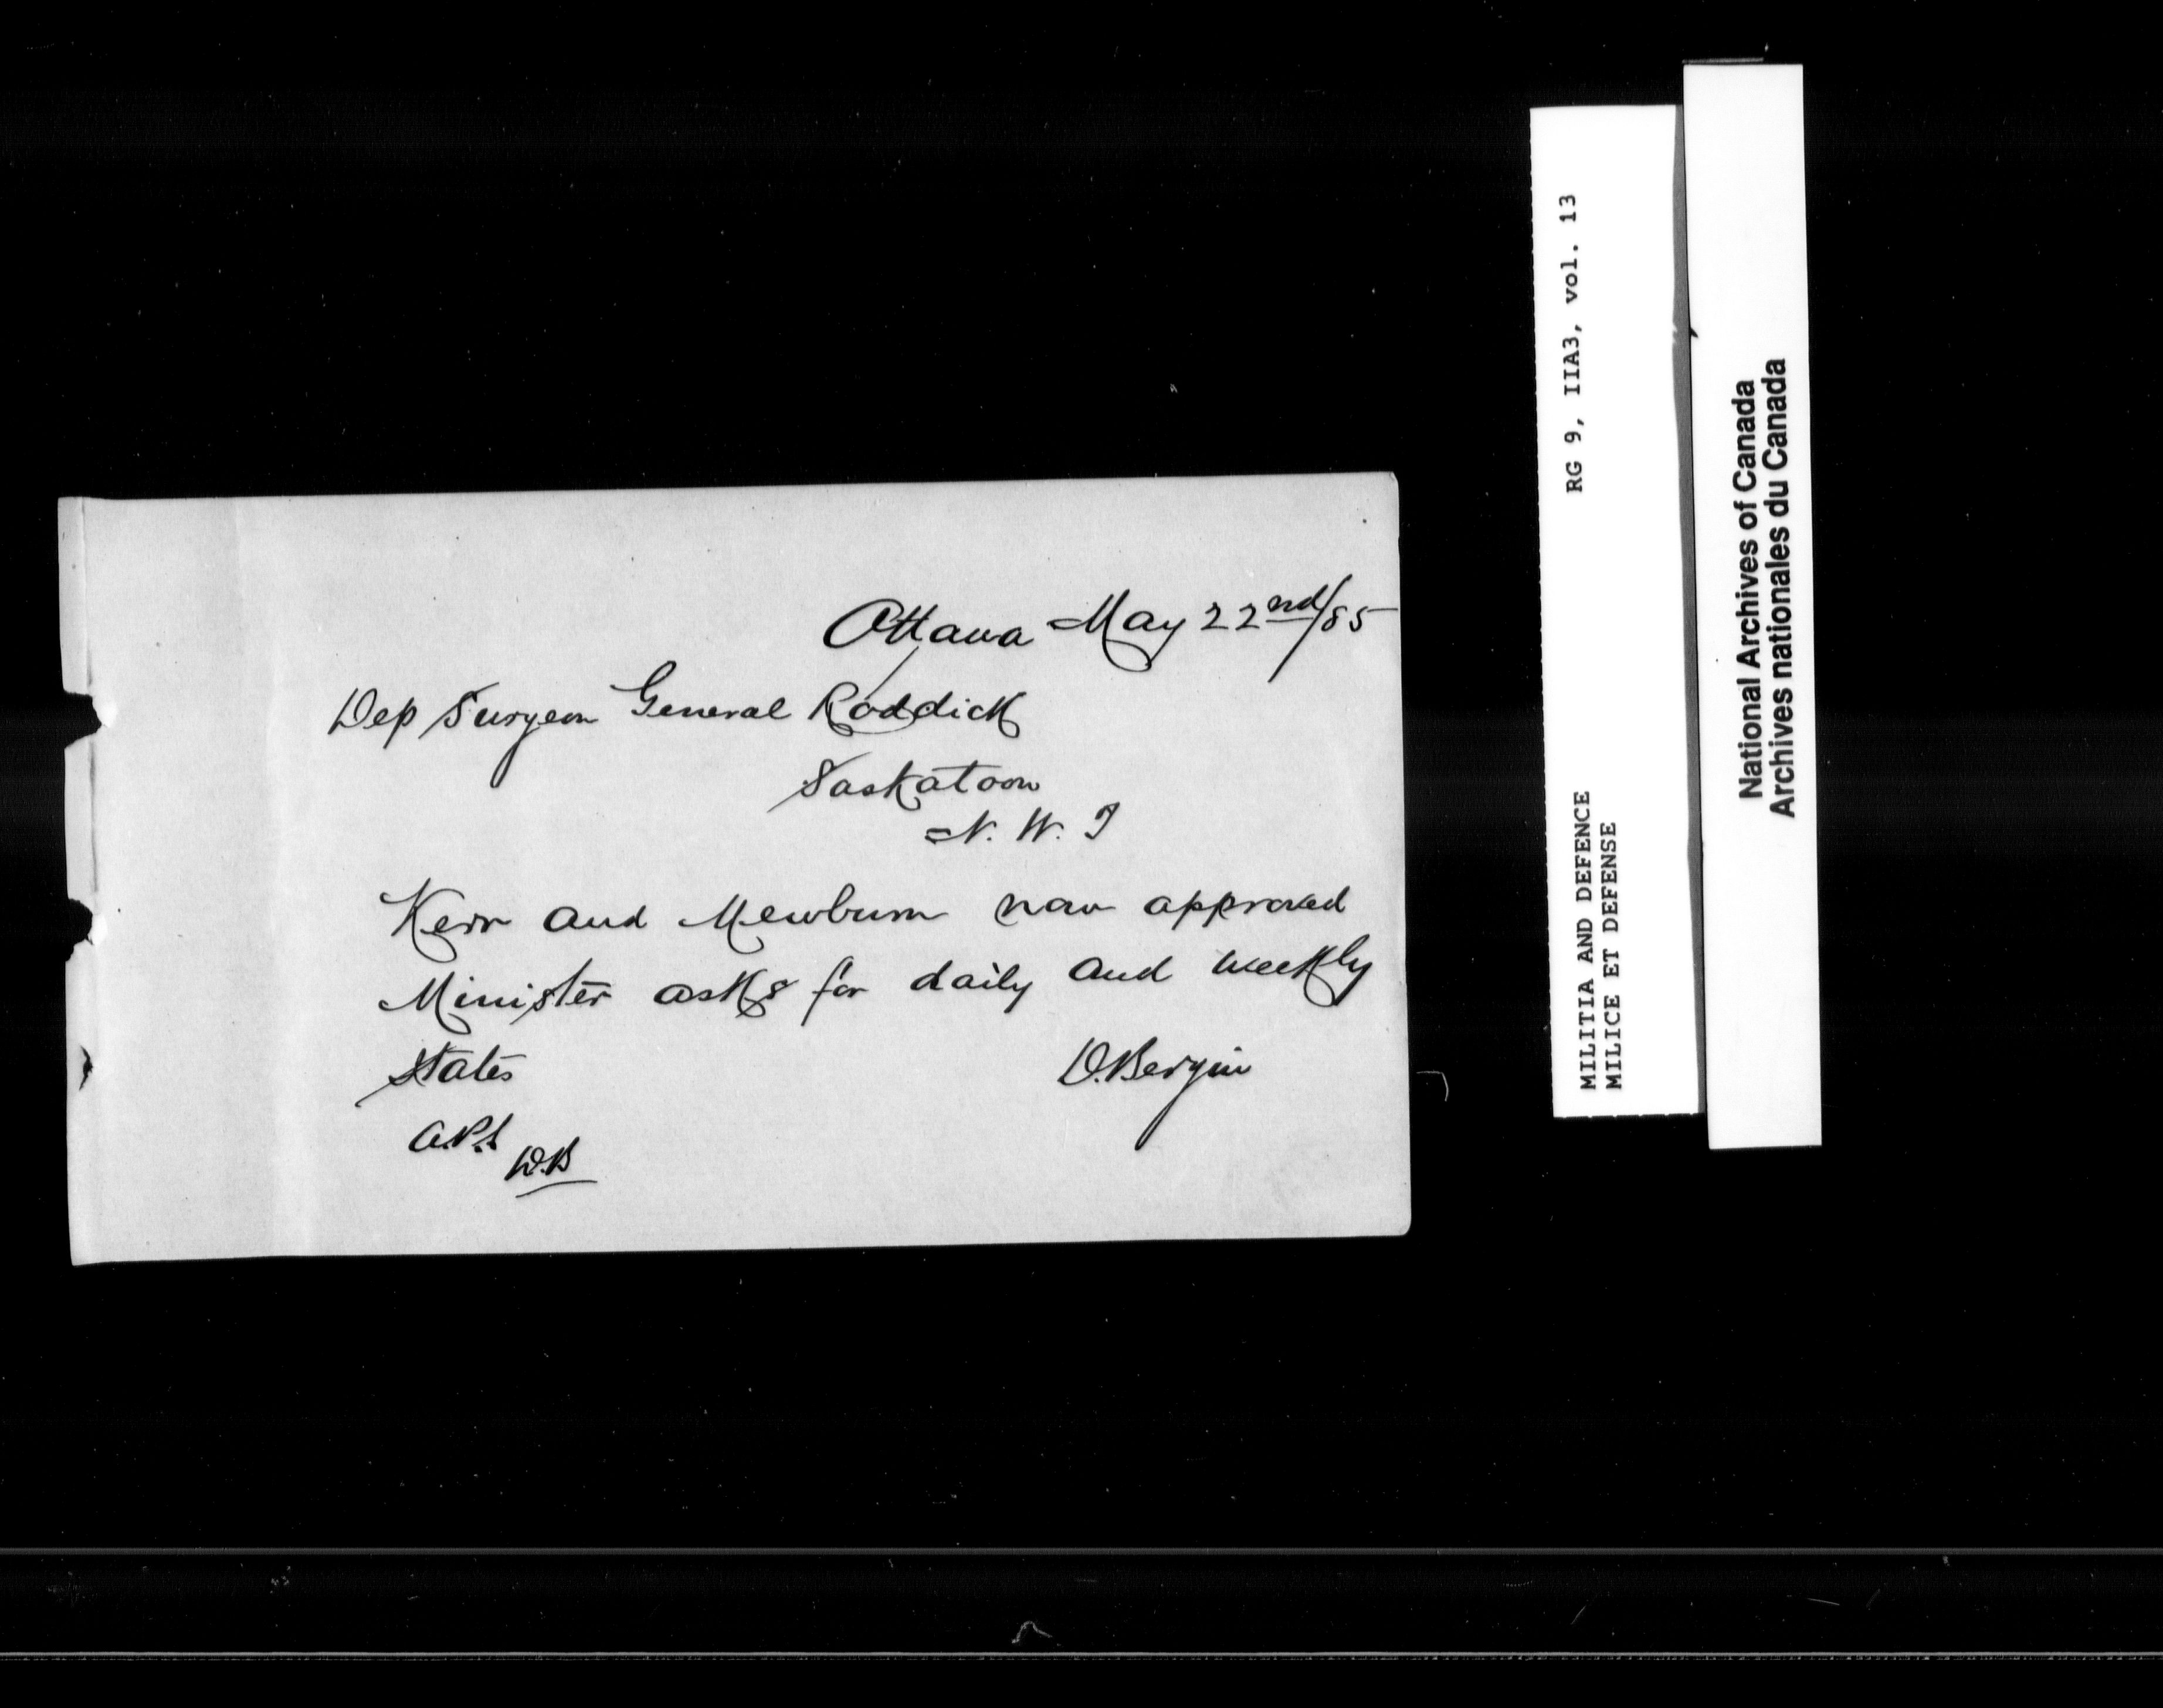 Ottawa May 22nd/85
Dep Surgeon General Roddick
Saskatoon
N. W. T
Kerr and Mewburn now approved
Minister asks for daily and weekly
States
D. Bergin
D.B
RG 9, IIA3, vol. 13
MILITIA AND DEFENCE
MILICE ET DEFENSE
National Archives of Canada
Archives nationales du Canada